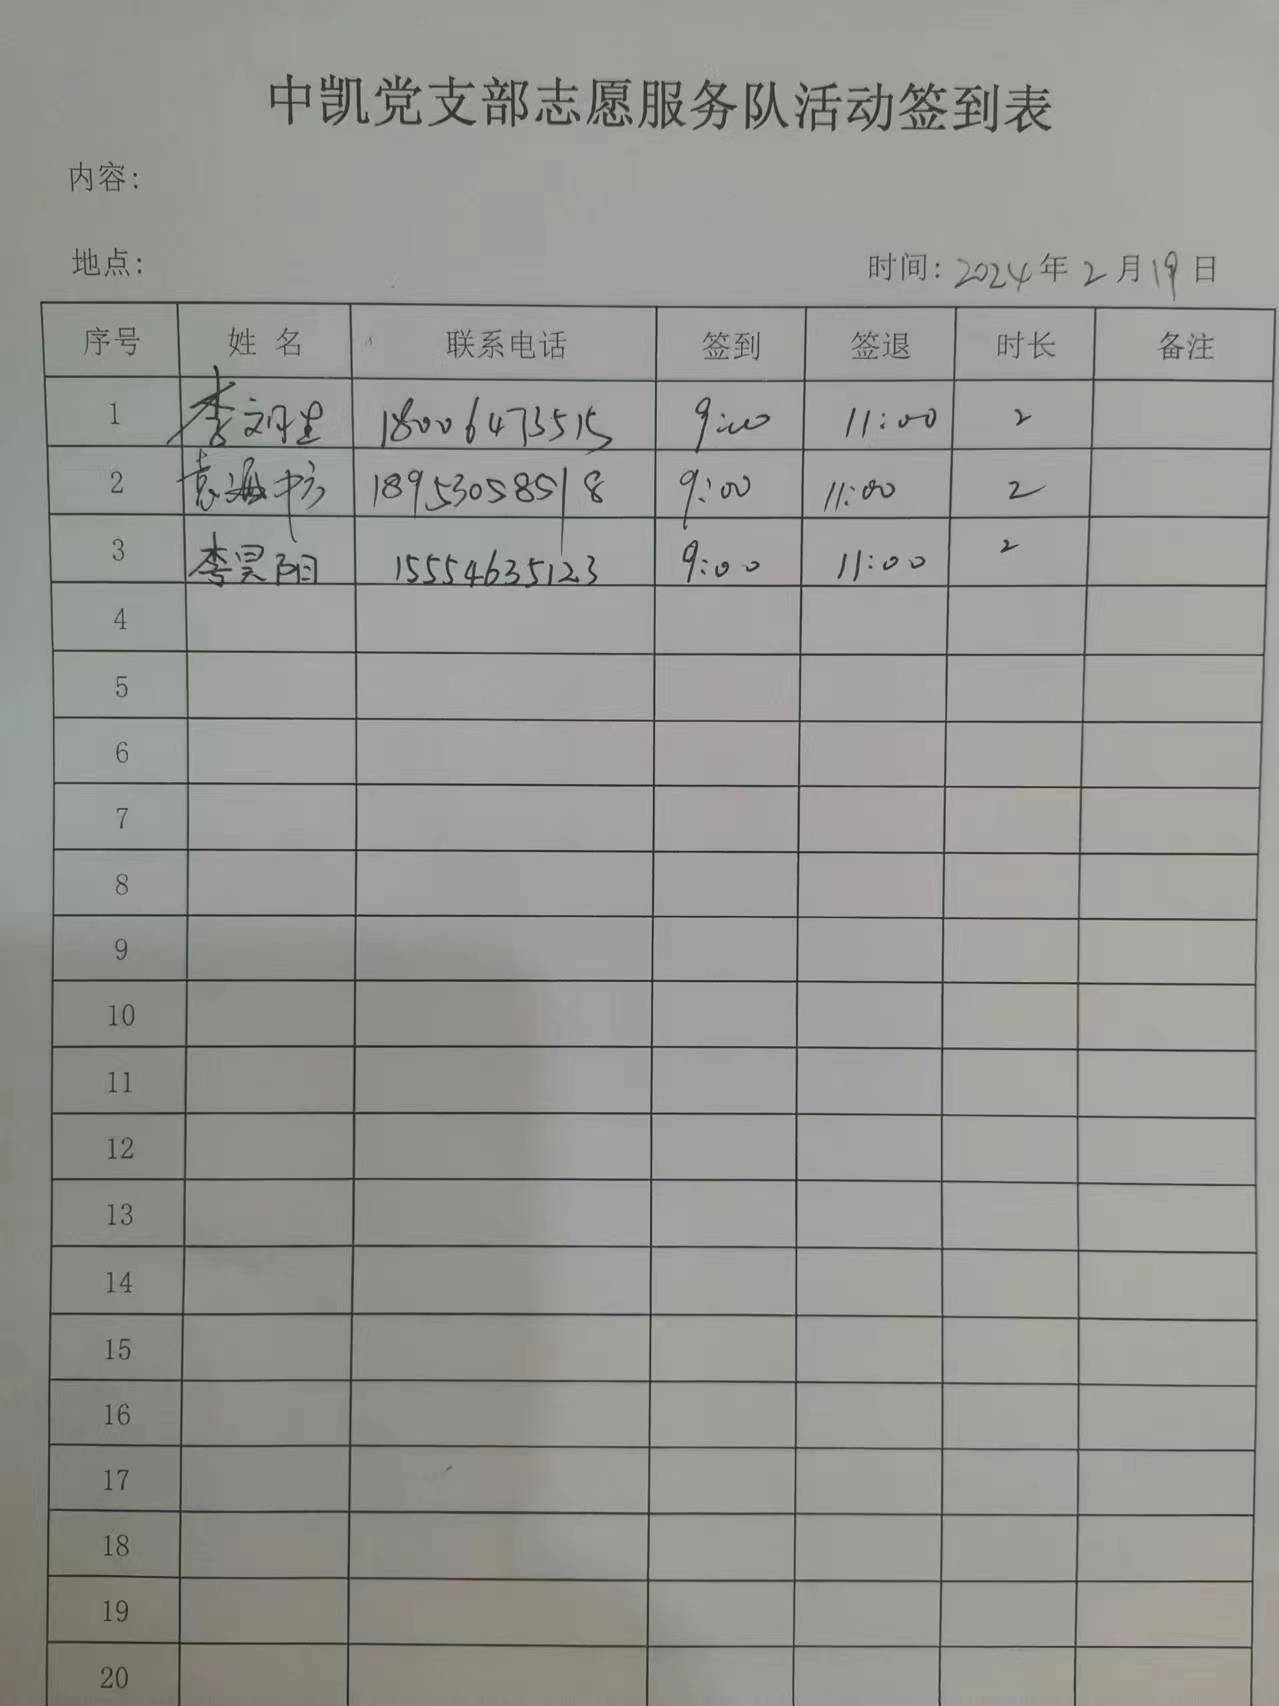 中凯党支部志愿服务队活动签到表
内容：
地点：
时间：2024年2月19日
序号 姓 名 联系电话 签到 签退 时长 备注
1 李 18006473515 9:00 11:00 2
2 袁海 18953058518 9:00 11:00 2
3 李昊阳 15554635123 9:00 11:00 2
4
5
6
7
8
9
10
11
12
13
14
15
16
17
18
19
20